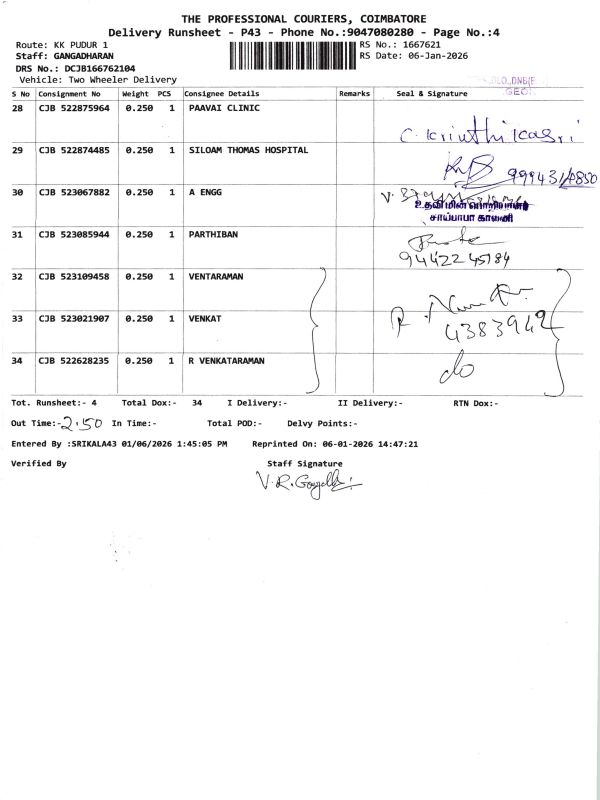 THE PROFESSIONAL COURIERS, COIMBATORE
Delivery Runsheet - P43 - Phone No.:9047080280 - Page No.:4
Route: KK PUDUR 1 RS No.: 1667621
Staff: GANGADHARAN RS Date: 06-Jan-2026
DRS No.: DCJB166762104
Vehicle: Two Wheeler Delivery
S No Consignment No Weight PCS Consignee Details Remarks Seal & Signature
28 CJB 522875964 0.250 1 PAAVAI CLINIC
29 CJB 522874485 0.250 1 SILOAM THOMAS HOSPITAL
30 CJB 523067882 0.250 1 A ENGG
உதவி மின் பொறியாளர்
சாய்பாபா காலனி
31 CJB 523085944 0.250 1 PARTHIBAN
9442245184
32 CJB 523109458 0.250 1 VENTARAMAN
33 CJB 523021907 0.250 1 VENKAT
4383942
34 CJB 522628235 0.250 1 R VENKATARAMAN
do
Tot. Runsheet:- 4 Total Dox:- 34 I Delivery:- II Delivery:- RTN Dox:-
Out Time:- 2.50 In Time:- Total POD:- Delvy Points:-
Entered By :SRIKALA43 01/06/2026 1:45:05 PM Reprinted On: 06-01-2026 14:47:21
Verified By Staff Signature